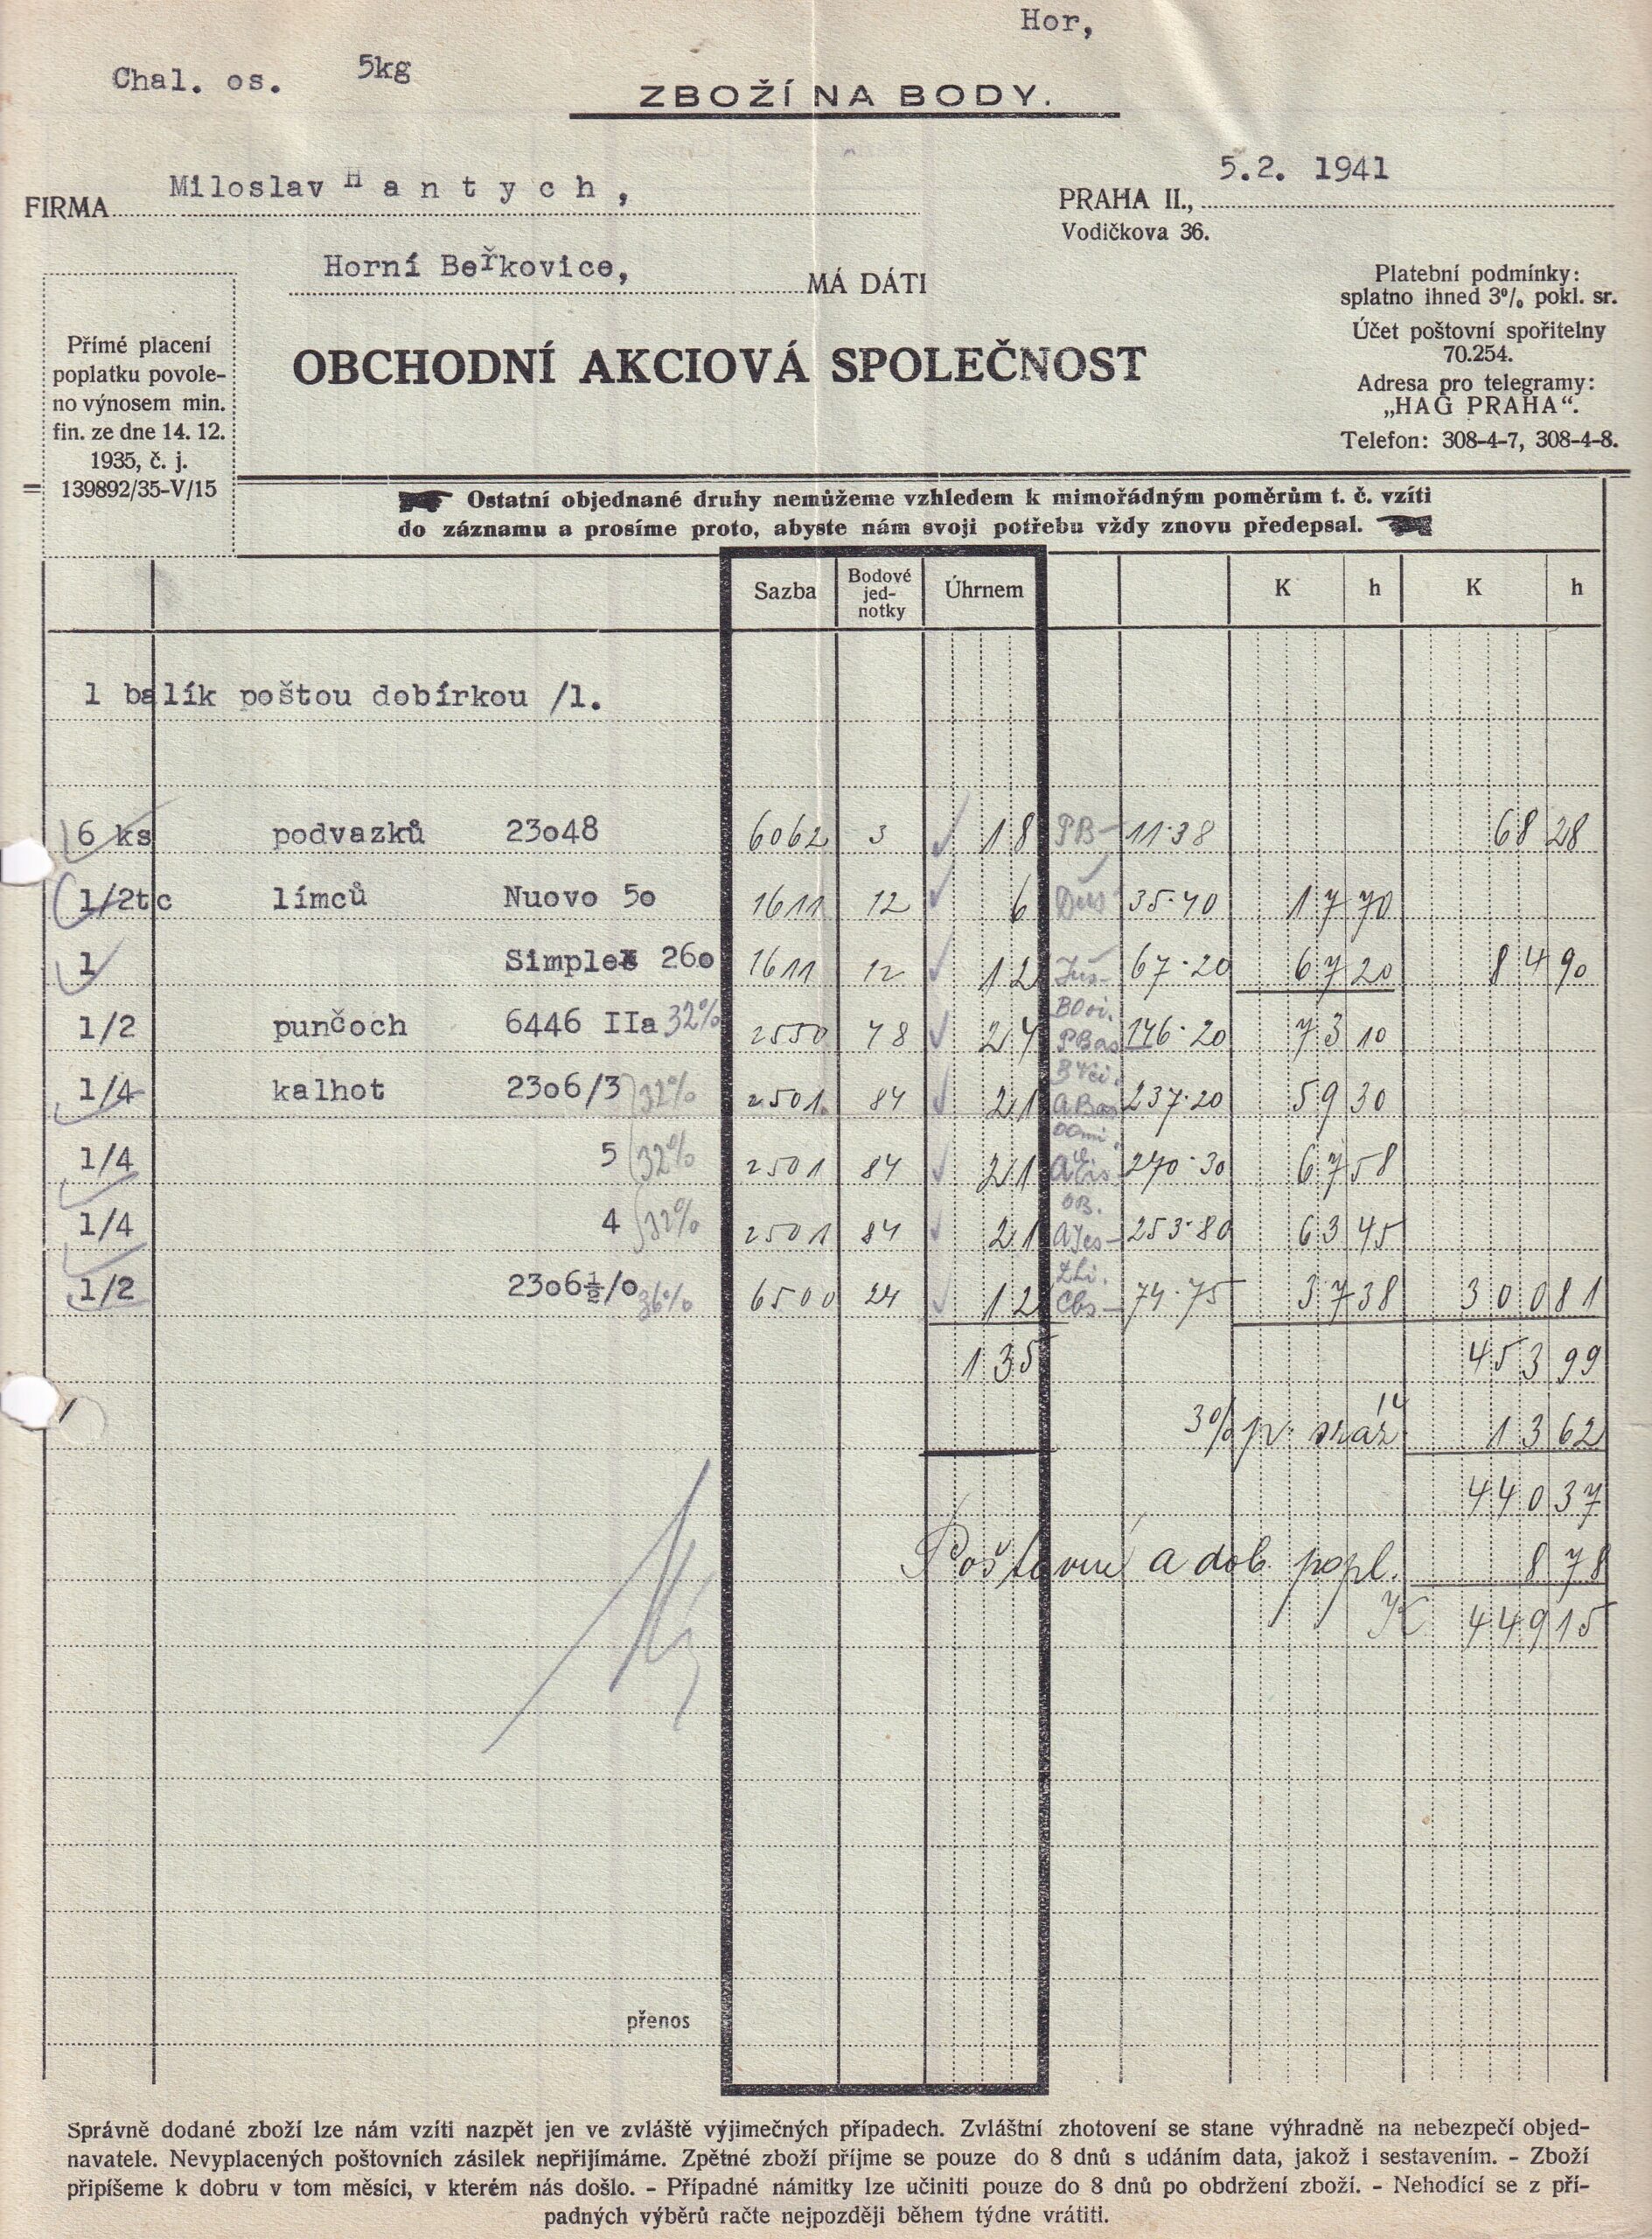 Hor,
Chal. os. 5kg
ZBOŽÍ NA BODY.
5.2. 1941
Miloslav H a n t y c h ,
FIRMA
PRAHA II.,
Vodičkova 36.
Horní Beřkovice,
MÁ DÁTI
Platební podmínky:
splatno ihned 3% pokl. sr.
Účet poštovní spořitelny
70.254.
Adresa pro telegramy:
„HAG PRAHA“.
Telefon: 308-4-7, 308-4-8.
Přímé placení
poplatku povole-
no výnosem min.
fin. ze dne 14. 12.
1935, č. j.
139892/35-V/15
OBCHODNÍ AKCIOVÁ SPOLEČNOST
Ostatní objednané druhy nemůžeme vzhledem k mimořádným poměrům t. č. vzíti
do záznamu a prosíme proto, abyste nám svoji potřebu vždy znovu předepsal.
Sazba Bodové jed- notky Úhrnem K h K h
1 balík poštou dobírkou /1.
6 ks podvazků 23o48 6062 3 18 PB- 11·38 68 28
1/2tc límců Nuovo 5o 1611 12 6 35·40 17 70
1 Simplex 26o 1611 12 12 67·20 67 20 84 90
1/2 punčoch 6446 IIa 32% 2550 48 24 146·20 73 10
1/4 kalhot 23o6/3 32% 2501 84 21 237·20 59 30
1/4 5 32% 2501 84 21 270·30 67 58
1/4 4 32% 2501 84 21 253·80 63 45
1/2 23o6½/o 36% 6500 24 12 74·75 37 38 300 81
135 453 99
3% p. sráž 13 62
440 37
Poštovné a dob. popl. 8 78
K 449 15
přenos
Správně dodané zboží lze nám vzíti nazpět jen ve zvláště výjimečných případech. Zvláštní zhotovení se stane výhradně na nebezpečí objed-
navatele. Nevyplacených poštovních zásilek nepřijímáme. Zpětné zboží příjme se pouze do 8 dnů s udáním data, jakož i sestavením. - Zboží
připíšeme k dobru v tom měsíci, v kterém nás došlo. - Případné námitky lze učiniti pouze do 8 dnů po obdržení zboží. - Nehodící se z pří-
padných výběrů račte nejpozději během týdne vrátiti.